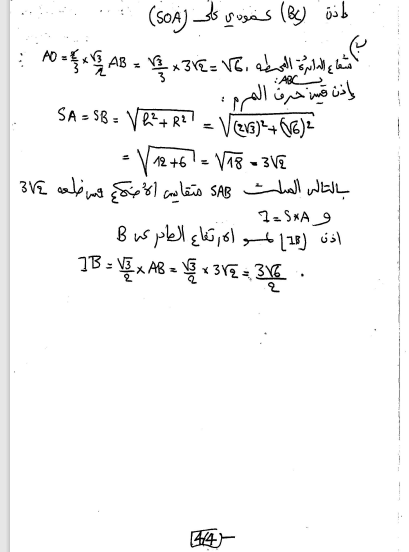 إذن (BC) عمودي على (SOA)
ب) شعاع الدائرة المحيطة بـ ABC: AO = 2/3 × √3/2 AB = √3/3 × 3√2 = √6
وإذن قيس حرف الهرم:
SA = SB = √(h² + R²) = √((2√3)² + (√6)²)
= √(12+6) = √18 = 3√2
بالتالي المثلث SAB متقايس الأضلاع قيس ضلعه 3√2
و I = S*A
اذن [IB] هو الارتفاع الصادر من B
IB = √3/2 × AB = √3/2 × 3√2 = 3√6/2 .
4/4